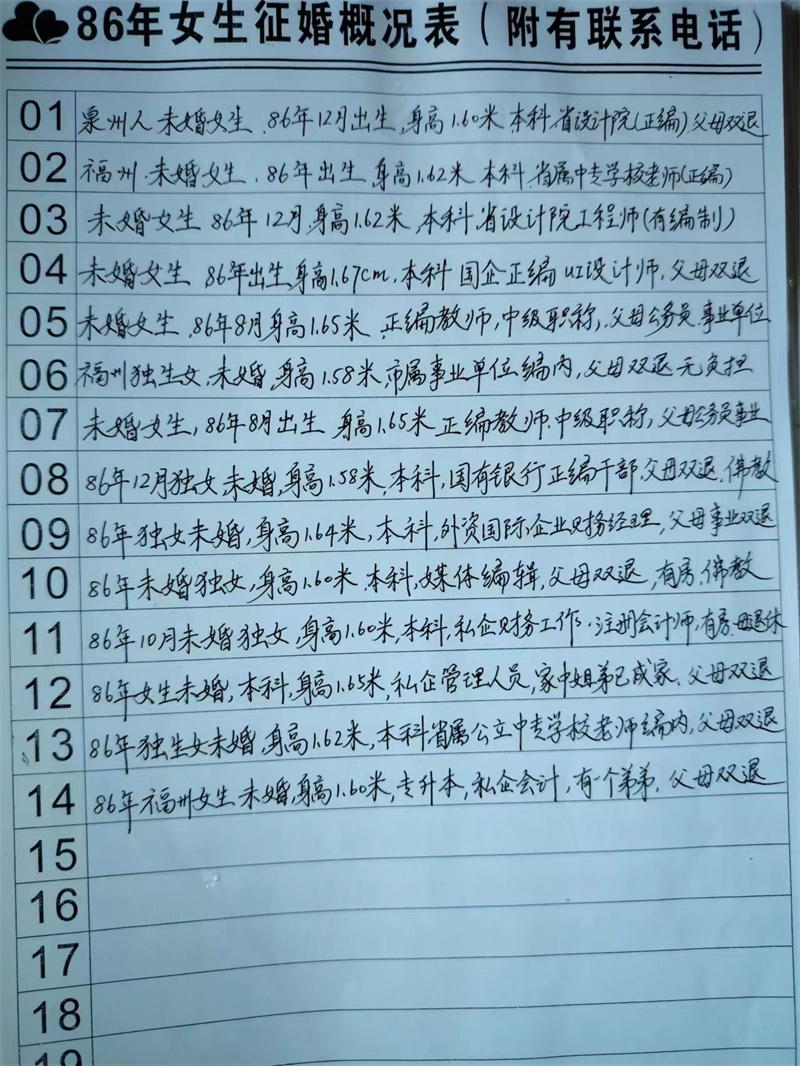 86年女生征婚概况表（附有联系电话）
01 泉州人 未婚女生 86年12月出生 身高1.60米 本科 省设计院(正编) 父母双退
02 福州 未婚女生 86年出生 身高1.62米 本科 省属中专学校老师(正编)
03 未婚女生 86年12月,身高1.62米,本科,省设计院工程师(有编制)
04 未婚女生 86年出生,身高1.67cm,本科 国企正编 UI设计师,父母双退
05 未婚女生,86年8月身高1.65米 正编教师,中级职称,父母公务员 事业单位
06 福州独生女,未婚,身高1.58米,市属事业单位编内,父母双退 无负担
07 未婚女生,86年8月出生 身高1.65米 正编教师,中级职称,父母公务员事业
08 86年12月独女 未婚,身高1.58米,本科,国有银行正编干部,父母双退,佛教
09 86年独女未婚,身高1.64米,本科,外资国际企业财务经理,父母事业双退
10 86年未婚独女,身高1.60米 本科,媒体编辑,父母双退,有房,佛教
11 86年10月未婚独女,身高1.60米,本科,私企财务工作,注册会计师,有房,母退休
12 86年女生未婚,本科,身高1.65米,私企管理人员,家中姐弟已成家,父母双退
13 86年独生女未婚,身高1.62米,本科省属公立中专学校老师编内,父母双退
14 86年福州女生 未婚,身高1.60米,专升本,私企会计,有一个弟弟,父母双退
15
16
17
18
19